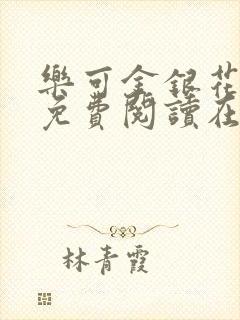 樂可金銀花
免費閱讀在
林青霞